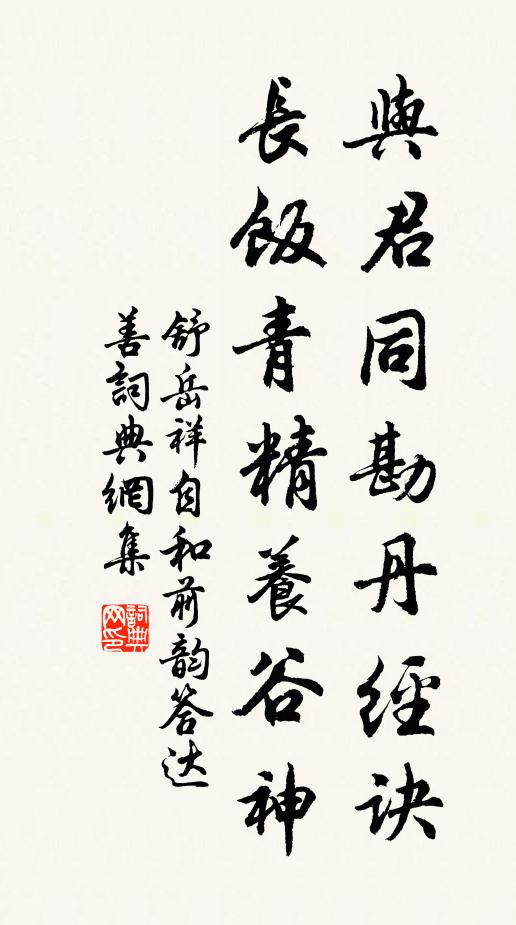 與君同勘丹經訣
長飯青精養谷神
舒岳祥自和前韵答达
善詞典網集
詞典网印